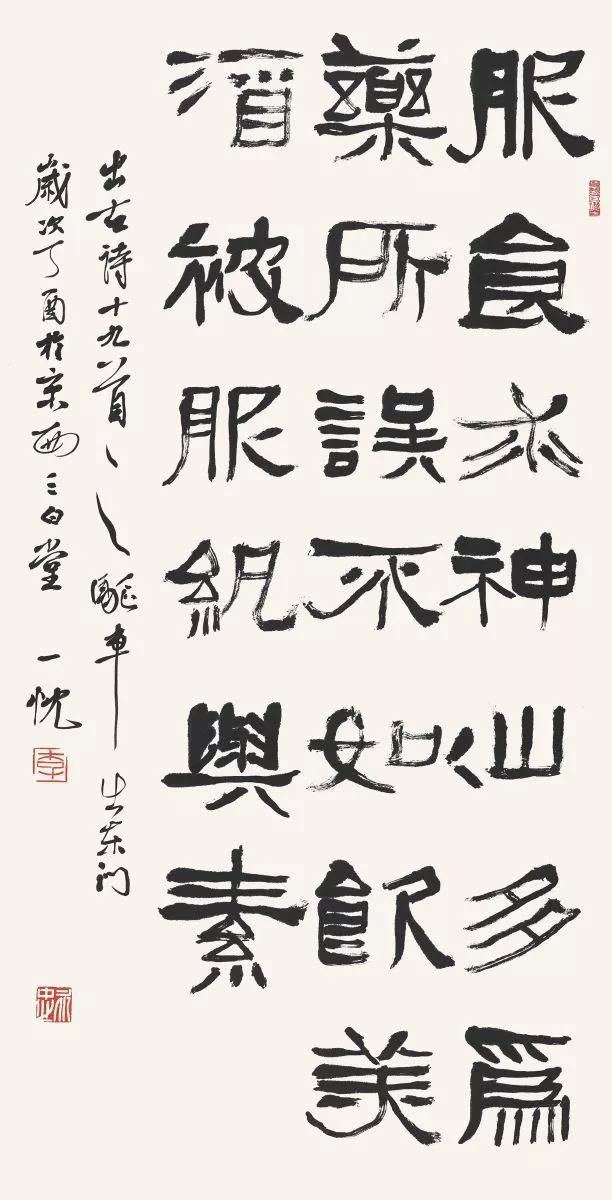 服食求神仙多爲
藥所誤不如飲美
酒被服紈與素
出古詩十九首之驅車上东门
歲次丁酉於京西三白堂 一忱